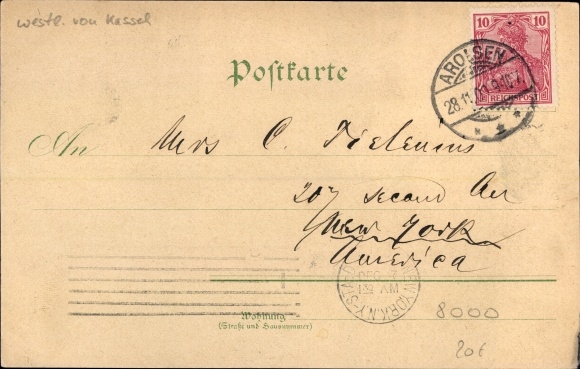 westl. von Kassel
10 10
REICHSPOST
AROLSEN
28.11.
Postkarte
An Mrs C. Tielemms
207 second Av
New York
America
NEW YORK, N.Y. STA
DEC
AM
Wohnung
(Straße und Hausnummer)
8000
20€